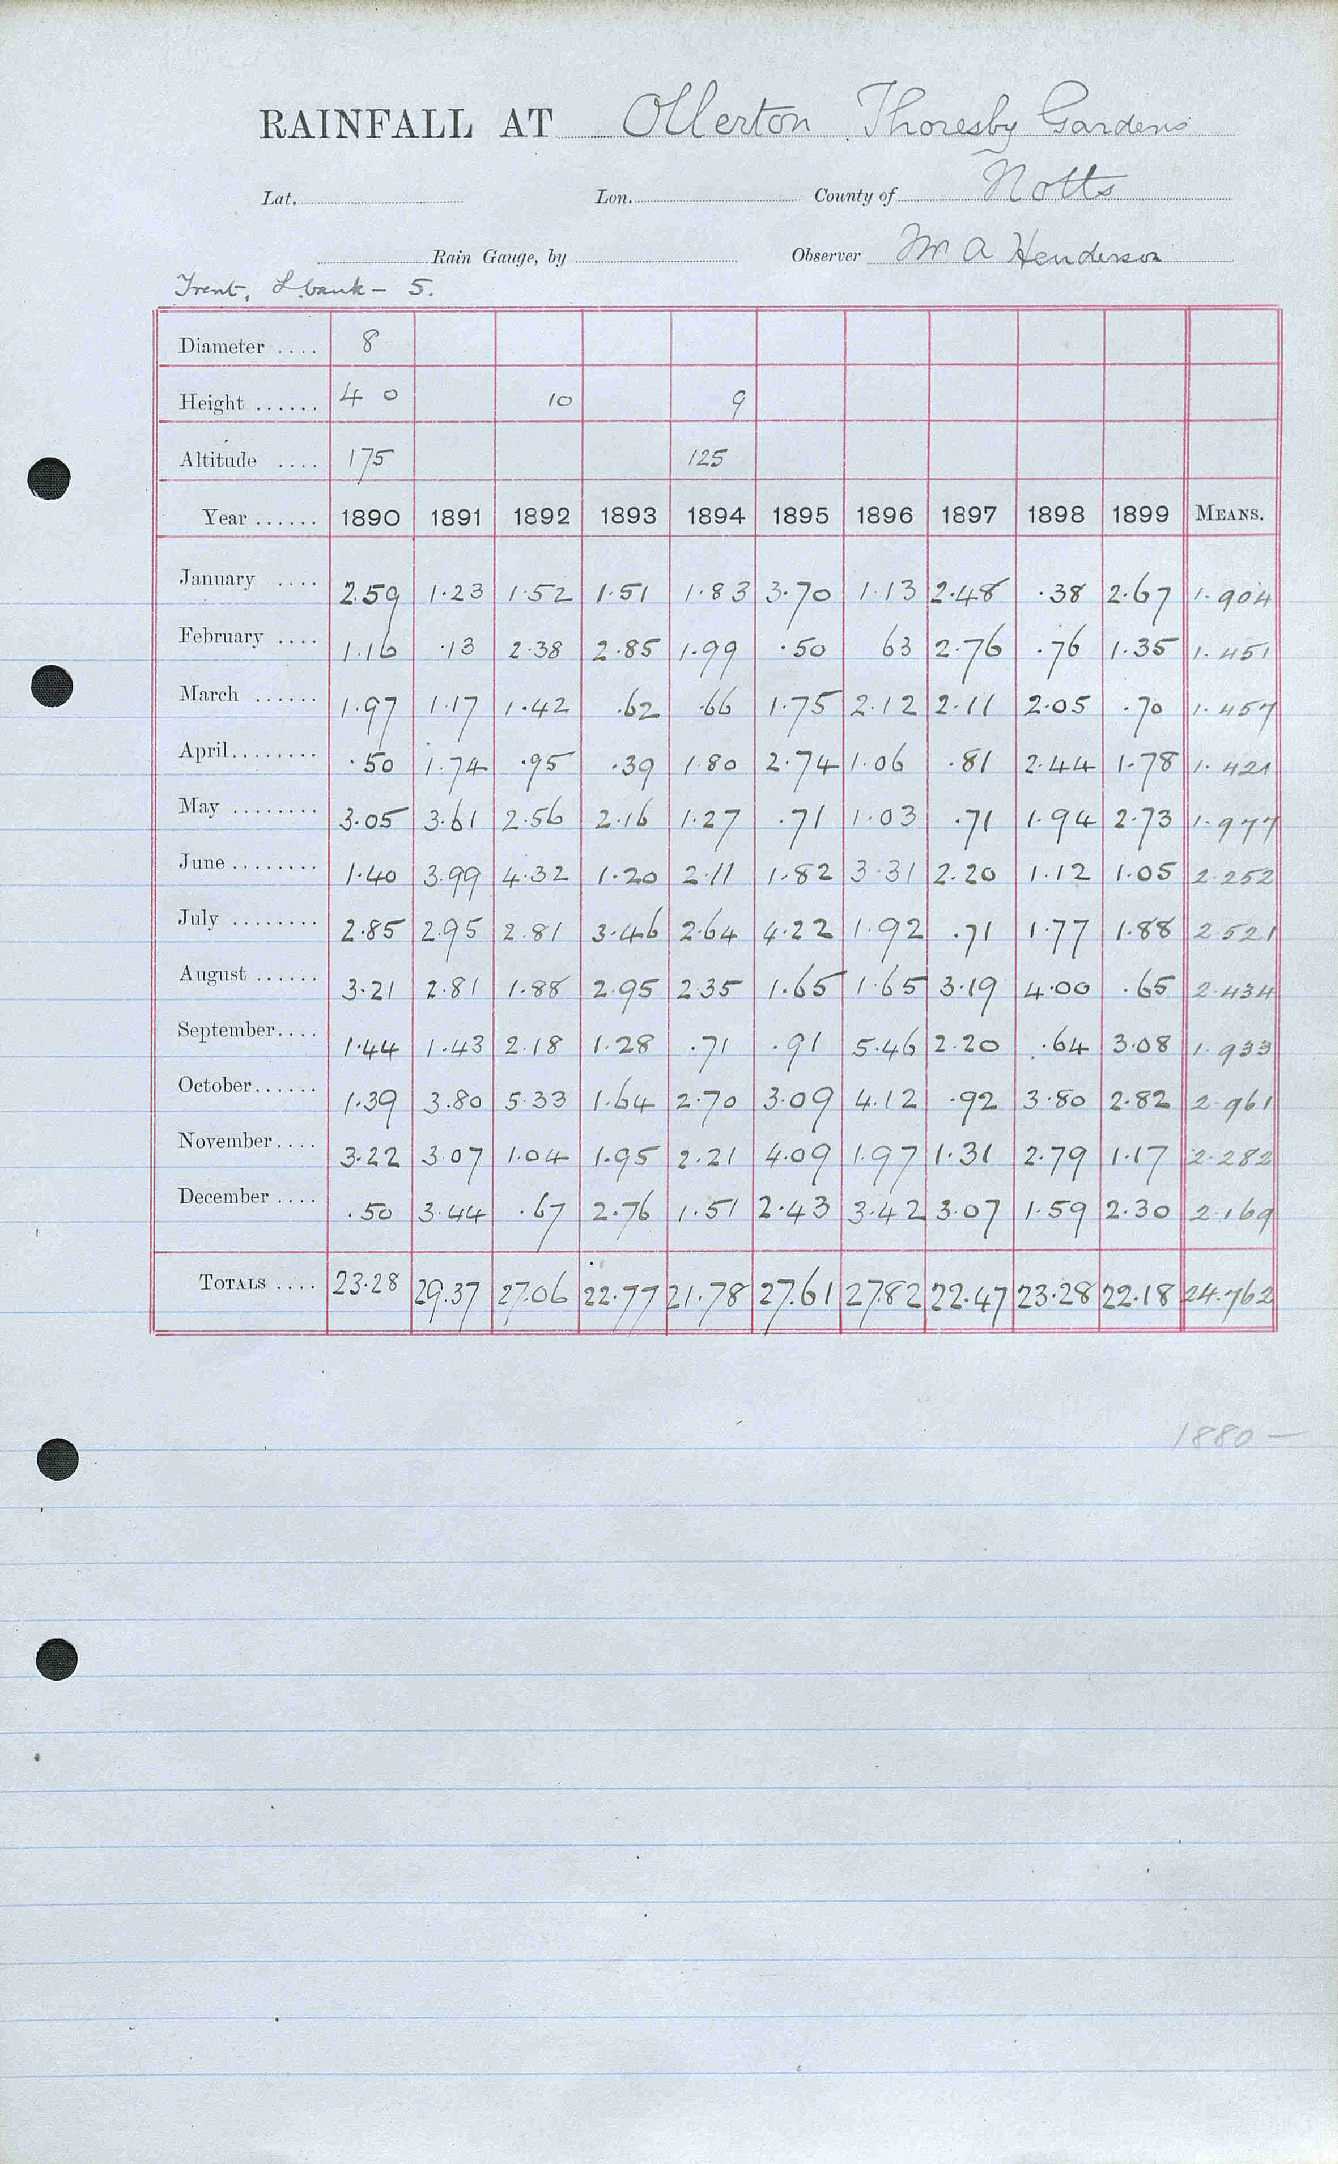 RAINFALL AT Ollerton Thoresby Gardens
Lat. Lon. County of Notts
Rain Gauge, by Observer Mr A Henderson
Trent, L bank - 5.
Diameter .... 8
Height ...... 4 0 10 9
Altitude .... 175 125
Year ...... 1890 1891 1892 1893 1894 1895 1896 1897 1898 1899 MEANS.
January .... 2.59 1.23 1.52 1.51 1.83 3.70 1.13 2.48 .38 2.67 1.904
February .... 1.16 .13 2.38 2.85 1.99 .50 63 2.76 .76 1.35 1.451
March ...... 1.97 1.17 1.42 .62 .66 1.75 2.12 2.11 2.05 .70 1.457
April........ .50 1.74 .95 .39 1.80 2.74 1.06 .81 2.44 1.78 1.421
May ........ 3.05 3.61 2.56 2.16 1.27 .71 1.03 .71 1.94 2.73 1.977
June ........ 1.40 3.99 4.32 1.20 2.11 1.82 3.31 2.20 1.12 1.05 2.252
July ........ 2.85 2.95 2.81 3.46 2.64 4.22 1.92 .71 1.77 1.88 2.521
August ...... 3.21 2.81 1.88 2.95 2.35 1.65 1.65 3.19 4.00 .65 2.434
September.... 1.44 1.43 2.18 1.28 .71 .91 5.46 2.20 .64 3.08 1.933
October...... 1.39 3.80 5.33 1.64 2.70 3.09 4.12 .92 3.80 2.82 2.961
November.... 3.22 3.07 1.04 1.95 2.21 4.09 1.97 1.31 2.79 1.17 2.282
December .... .50 3.44 .67 2.76 1.51 2.43 3.42 3.07 1.59 2.30 2.169
TOTALS .... 23.28 29.37 27.06 22.77 21.78 27.61 27.82 22.47 23.28 22.18 24.762
1880 —